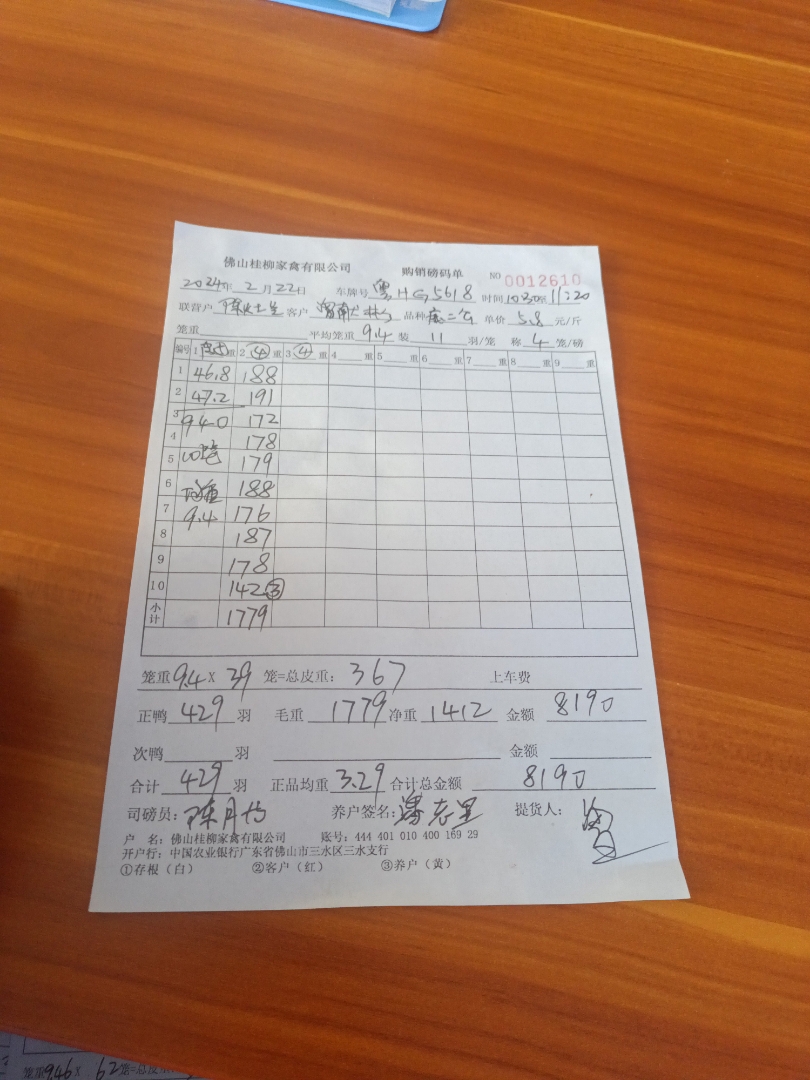 佛山桂柳家禽有限公司 购销磅码单 NO 0012610
2024年 2月22日 车牌号 粤HG5618 时间10:30至11:20
联营户 客户 品种 单价 5.8 元/斤
笼重 平均笼重 9.4 装 11 羽/笼 称 4 笼/磅
编号 1 重 2 ④ 重 3 ④ 重 4 重 5 重 6 重 7 重 8 重 9 重
1 46.8 188
2 47.2 191
3 94.0 172
4 178
5 10笼 179
6 均重 188
7 9.4 176
8 187
9 178
10 142 ③
小计 1779
笼重 9.4 X 39 笼=总皮重: 367 上车费
正鸭 429 羽 毛重 1779 净重 1412 金额 8190
次鸭 羽 金额
合计 429 羽 正品均重 3.29 合计总金额 8190
司磅员: 养户签名: 提货人:
户 名: 佛山桂柳家禽有限公司 账号: 444 401 010 400 169 29
开户行: 中国农业银行广东省佛山市三水区三水支行
①存根(白) ②客户(红) ③养户(黄)
笼重 9.46 X 62 笼=总皮